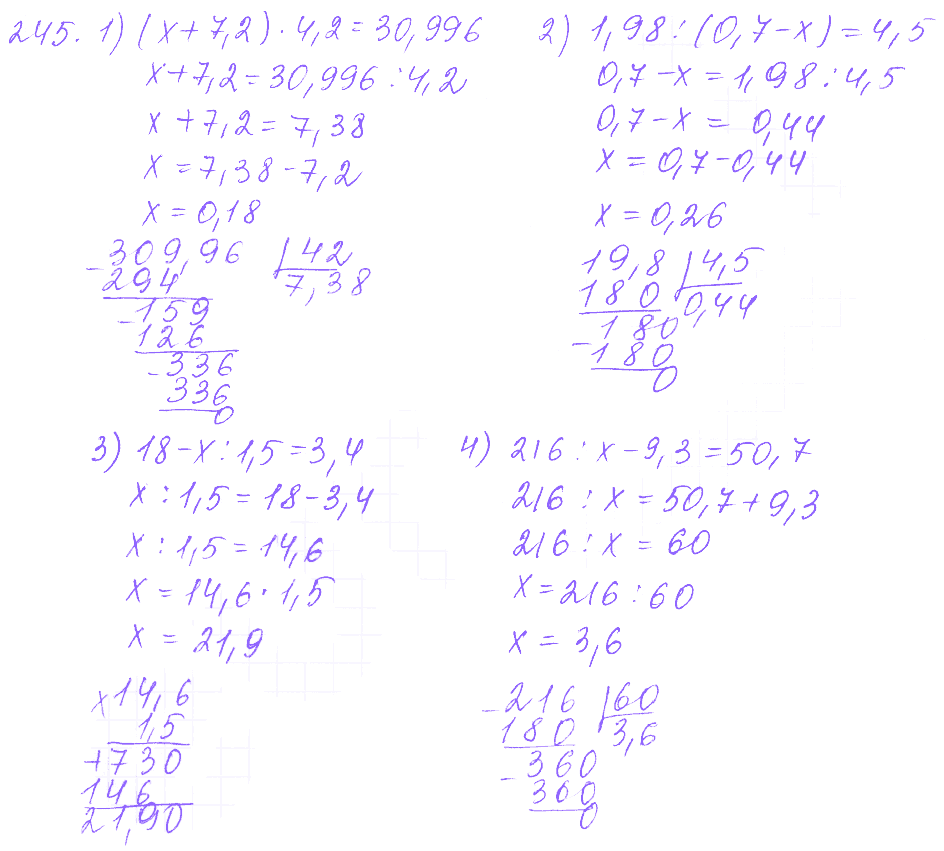 245. 1) (x+7,2)·4,2=30,996
x+7,2=30,996:4,2
x+7,2=7,38
x=7,38-7,2
x=0,18
-309,96 42
294 7,38
-159
126
-336
336
0
2) 1,98:(0,7-x)=4,5
0,7-x=1,98:4,5
0,7-x=0,44
x=0,7-0,44
x=0,26
19,8 4,5
180 0,44
180
-180
0
3) 18-x:1,5=3,4
x:1,5=18-3,4
x:1,5=14,6
x=14,6·1,5
x=21,9
x14,6
1,5
+730
146
21,90
4) 216:x-9,3=50,7
216:x=50,7+9,3
216:x=60
x=216:60
x=3,6
-216 60
180 3,6
-360
360
0